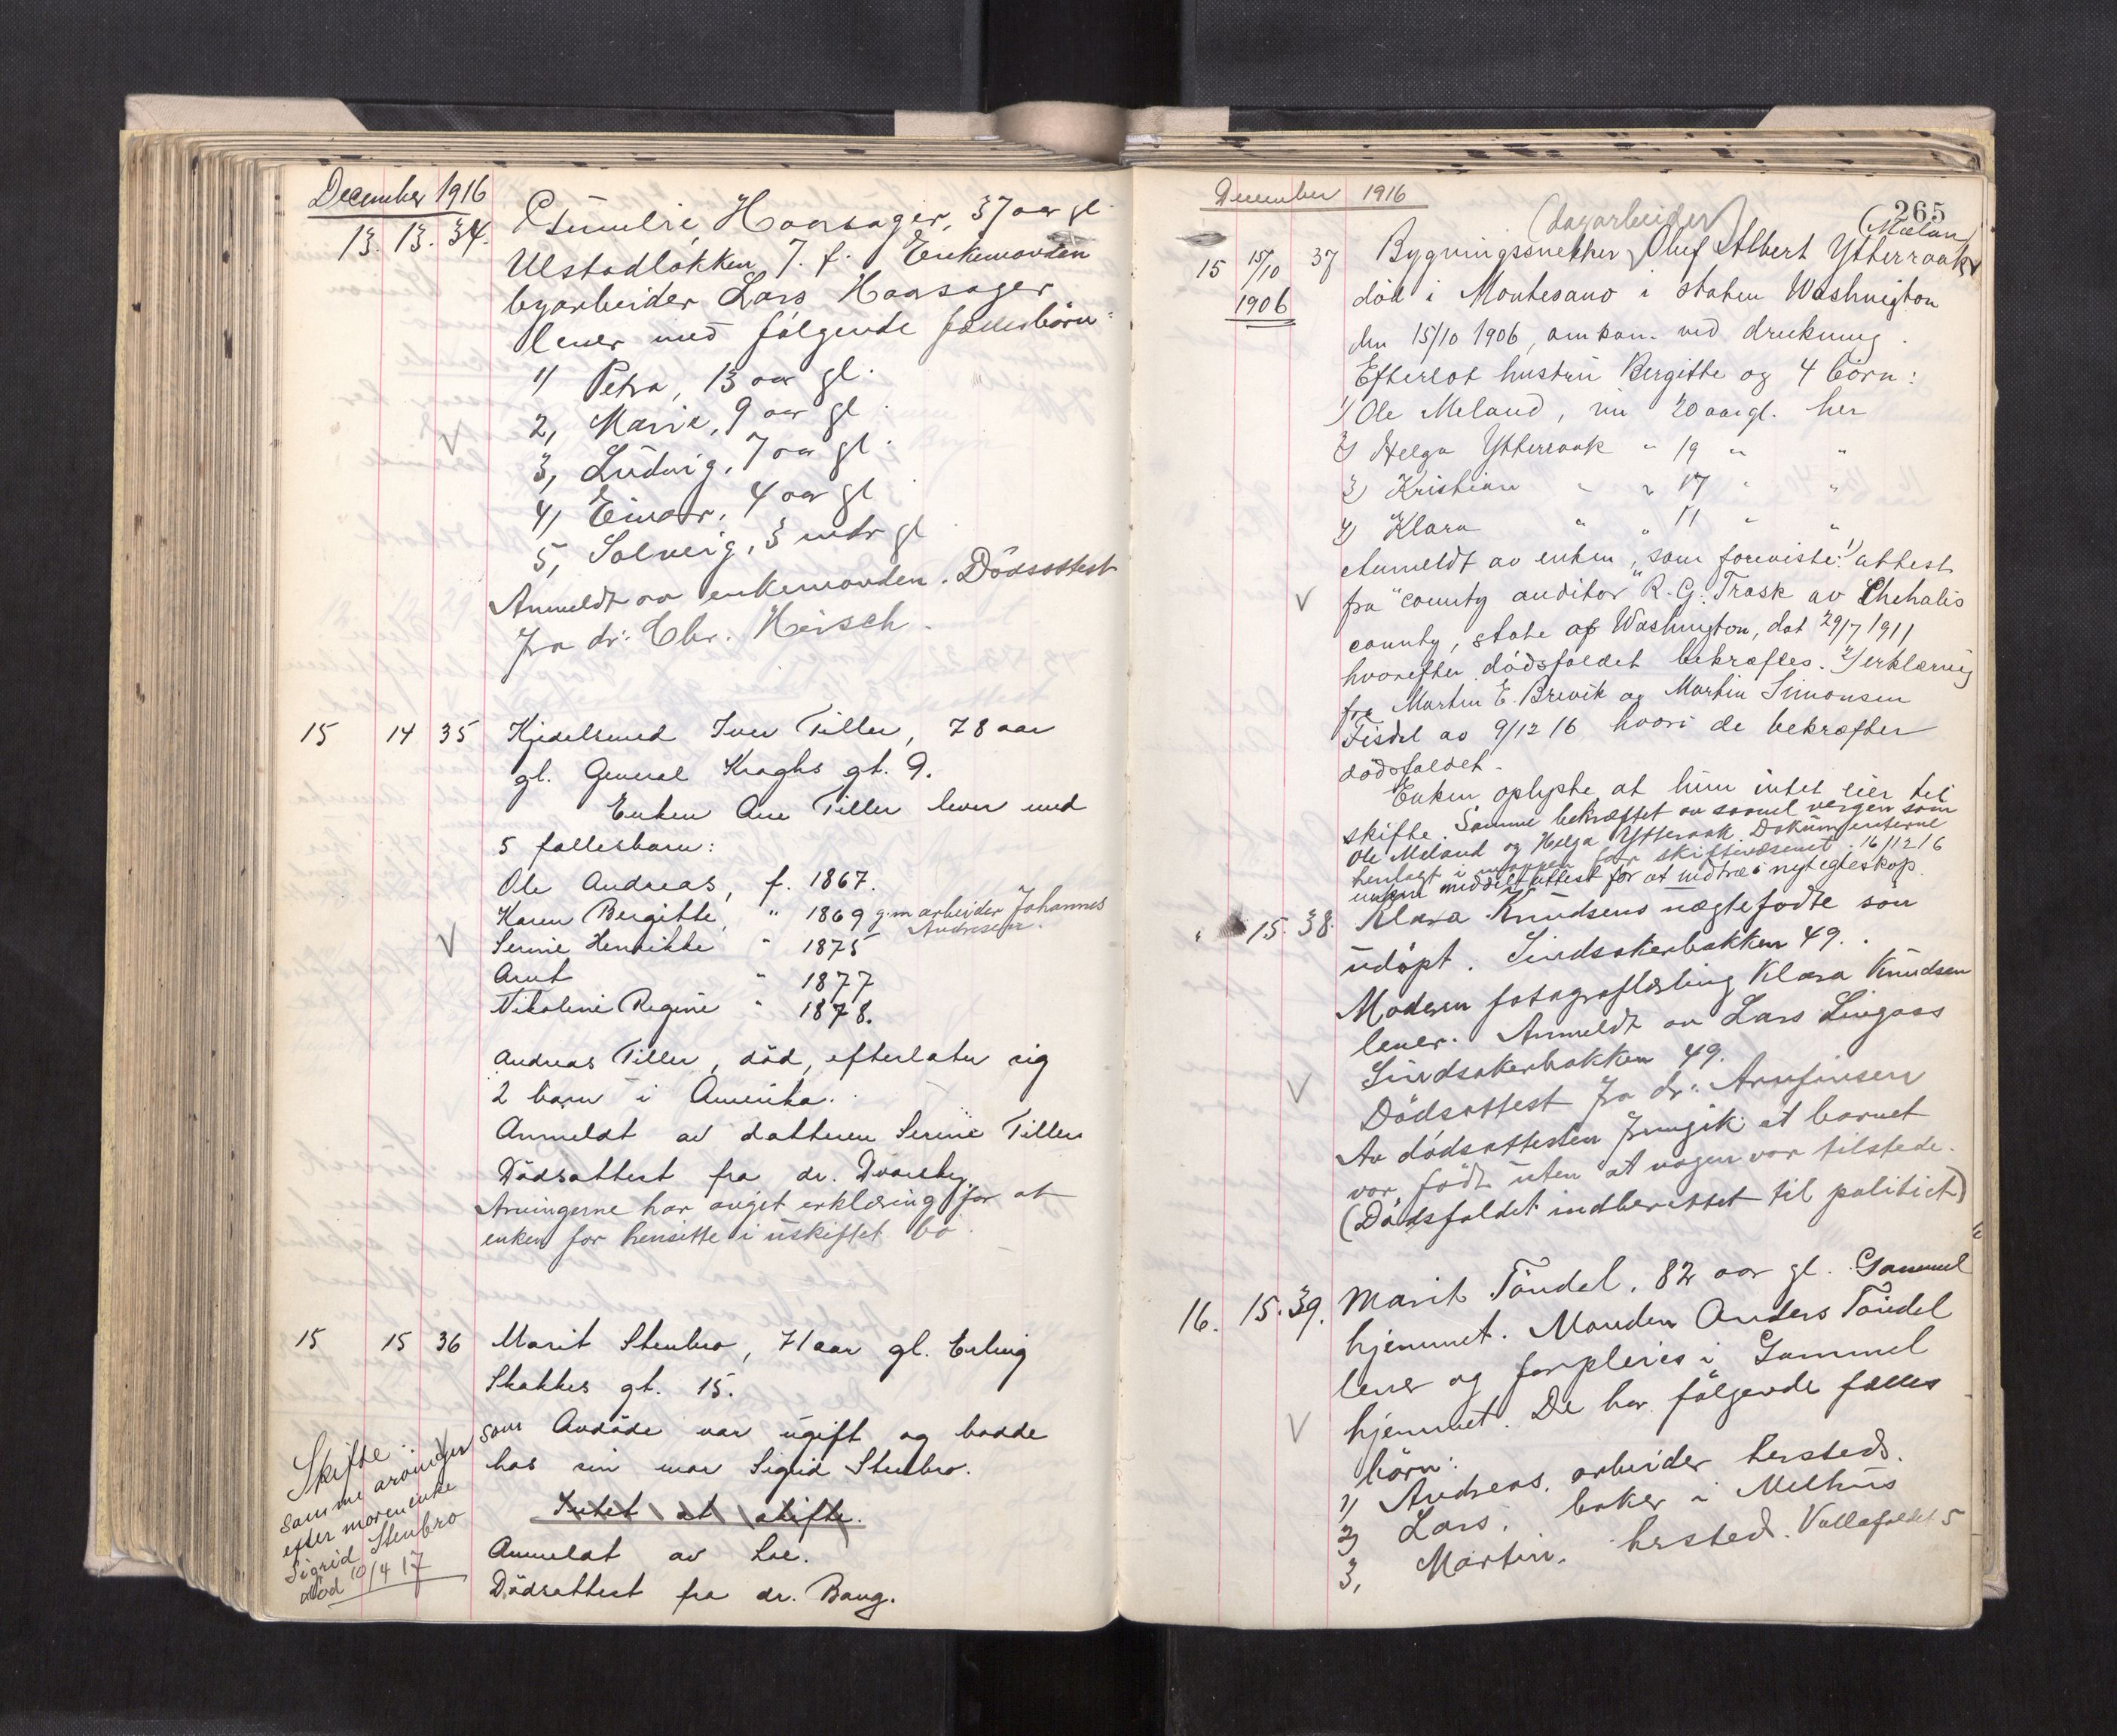 December 1916
13. 13. 34.
Haarsager, 37 aar gl.
Ulstadløkken 7. f. Enkemanden
byarbeider Lars Haarsager
lever med følgende fællesbørn:
1/ Petra, 13 aar gl.
2, Marie, 9 aar gl.
3, Ludvig, 7 aar gl.
4/ Einar, 4 aar gl
5, Solveig, 3 mdr gl
Anmeldt av enkemanden. Dödsattest
fra dr. Chr.
15 14 35 Kjedelsmed Iver Tiller, 78 aar
gl. General Kraghs gt. 9.
Enken Ane Tiller lever med
5 fællesbarn:
Ole Andreas, f. 1867.
Karen Bergitte, " 1869 g.m. arbeider Johannes
Andresen.
Serine Henrikke " 1875
Arnt " 1877
Nikoline Regine " 1878.
Andreas Tiller, död, efterlater sig
2 barn i Amerika.
Anmeldt av datteren Serine Tiller
Dödsattest fra dr.
Arvingerne har avgit erklæring for at
enken for hensitte i uskiftet bo.
15 15 36 Marit Stenbro, 71 aar gl. Erling
Skakkes gt. 15.
Avdöde var ugift og bodde
hos sin mor Sigrid Stenbro.
Intet at skifte.
Anmeldt av Loe.
Dödsattest fra dr. Bang.
Skifte
samme arvinger som
efter moren enke
Sigrid Stenbro
död 10/4 17
265
December 1916
(dagarbeider) (Mæland)
15 15/10 1906 37 Bygningssnekker Oluf Albert Ytterraak
död i Montesano i staten Washington
den 15/10 1906, omkom ved drukning.
Efterlot hustru Bergitte og 4 börn:
1) Ole Meland, nu 20 aar gl. her
2) Helga Ytterraak " 19 " "
3) Kristian " " 17 " "
4) Klara " " 11 " "
Anmeldt av enken, som foreviste: 1) attest
fra "county auditor" R. G. Trask av Chehalis
county, state of Washington, dat 29/7 1911
hvorefter dödsfaldet bekræftes. 2) erklæring
fra Martin E. Brevik og Martin Simonsen
av 9/12 16 hvori de bekræfter
dödsfaldet.
Enken oplyste at hun intet eier til
skifte. Samme bekræftet av saavel vergen som
Ole Meland og Helga Ytterraak. Dokumenterne
henlagt i mappen for skiftevæsenet. 16/12 16
enken meddelt attest for at indtræ i nyt egteskap.
15. 38. Klara Knudsens uegtefødte søn
udøpt. Sindsakerbakken 49.
Moderen fotograflærling Klara Knudsen
lever. Anmeldt av Lars Lingaas
Sindsakerbakken 49.
Dödsattest fra dr: Arnfinsen
Av dödsattesten fremgik at barnet
var født uten at nogen var tilstede.
(Dødsfaldet indberettet til politiet)
16. 15. 39. Marit Töndel, 82 aar gl. Gammel
hjemmet. Manden Anders Töndel
lever og forpleies i Gammel
hjemmet. De har følgende fælles
børn:
1) Andreas, arbeider hersteds.
2) Lars, baker i Melhus
3, Martin, hersted. Vollafaldet 5